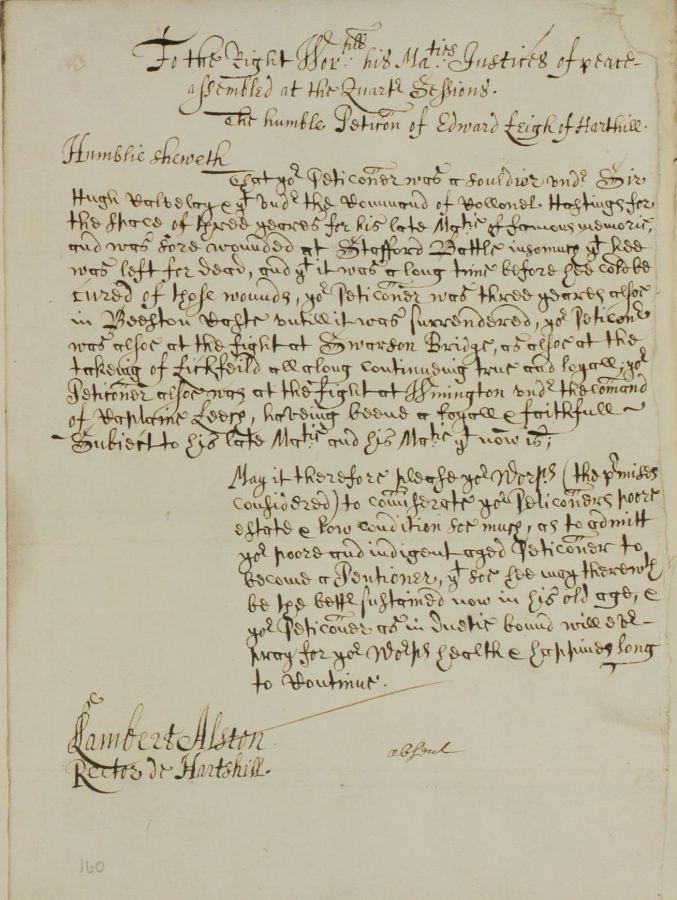 To the Right Wor:full his Ma:ties Justices of peace
assembled at the Quartr Sessions.
The humble Peticon of Edward Leigh of Harthill.
Humblie sheweth
That yor Peticoner was a souldior undr Sir
Hugh Calveley & yt undr the Command of Collonel Hastings for
the space of three yeares for his late Matie of famous memorie,
and was sore wounded at Stafford Battle insomuch yt hee
was left for dead, and yt it was a long time before hee cold be
cured of those wounds, yor Peticoner was three yeares alsoe
in Beeston Castle untill it was surrendered, yor Peticonr
was alsoe at the fight at Swarson Bridge, as alsoe at the
takeing of Lickfeild all along continueing true and loyall, yor
Peticoner alsoe was at the fight at Winington undr the comand
of Captaine Leech, haveing beene a loyall & faithfull
Subject to his late Matie and his Matie yt now is;
May it therefore please yor Worsps (the prmises
considered) to commiserate yor Peticoners poore
estate & low condition soe much, as to admitt
yor poore and indigent aged Peticoner to
become a Pentioner, yt soe hee may therewth
be the bettr sustained now in his old age, &
yor Peticoner as in duetie bound will evr
pray for yor Worsps health & happines long
to Continue.
Lambert Alston
Rector de Hartshill.
absent
160